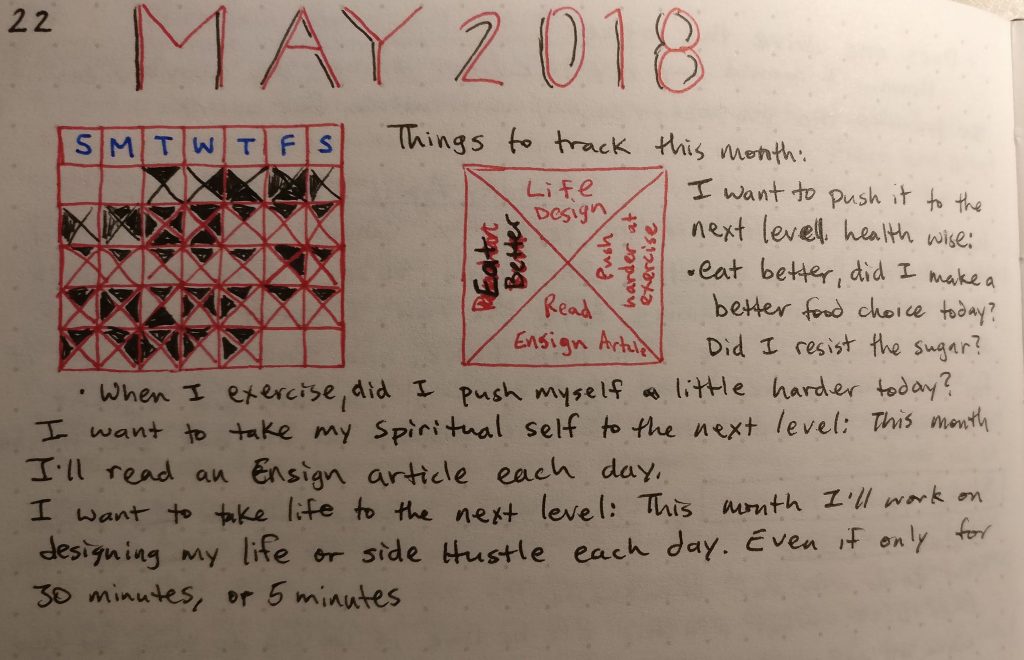 22
MAY 2018
S M T W T F S
Things to track this month:
Life
Design
Eat
Better
Push
harder at
exercise
Read
Ensign Article
I want to push it to the
next level health wise:
• eat better, did I make a
better food choice today?
Did I resist the sugar?
• When I exercise, did I push myself a little harder today?
I want to take my spiritual self to the next level: This month
I'll read an Ensign article each day.
I want to take life to the next level: This month I'll work on
designing my life or side Hustle each day. Even if only for
30 minutes, or 5 minutes